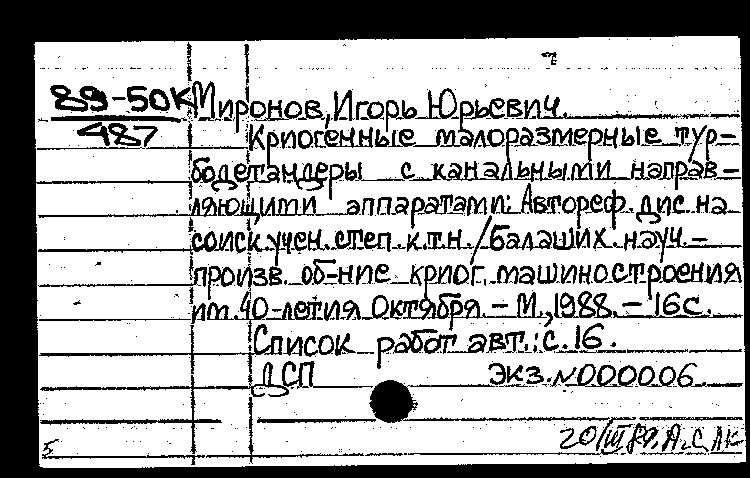 89-50К
487
Миронов, Игорь Юрьевич.
Криогенные малоразмерные тур-
бодетандеры с канальными направ-
ляющими аппаратами: Автореф. дис. на
соиск. учен. степ. к.т.н. / Балаших. науч.-
произв. об-ние криог. машиностроения
им. 40-летия Октября. - М., 1988. - 16 с.
Список работ авт.: с. 16.
ДСП экз. N000006.
20/III 89. А.С.
5